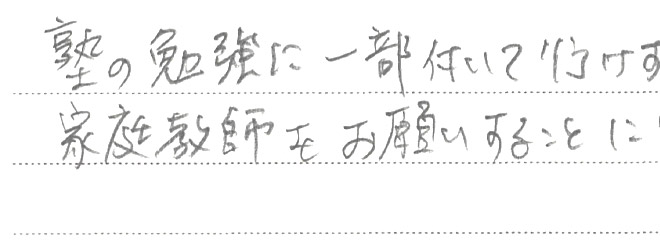 塾の勉強に一部付いて行けす
家庭教師をお願いすることに